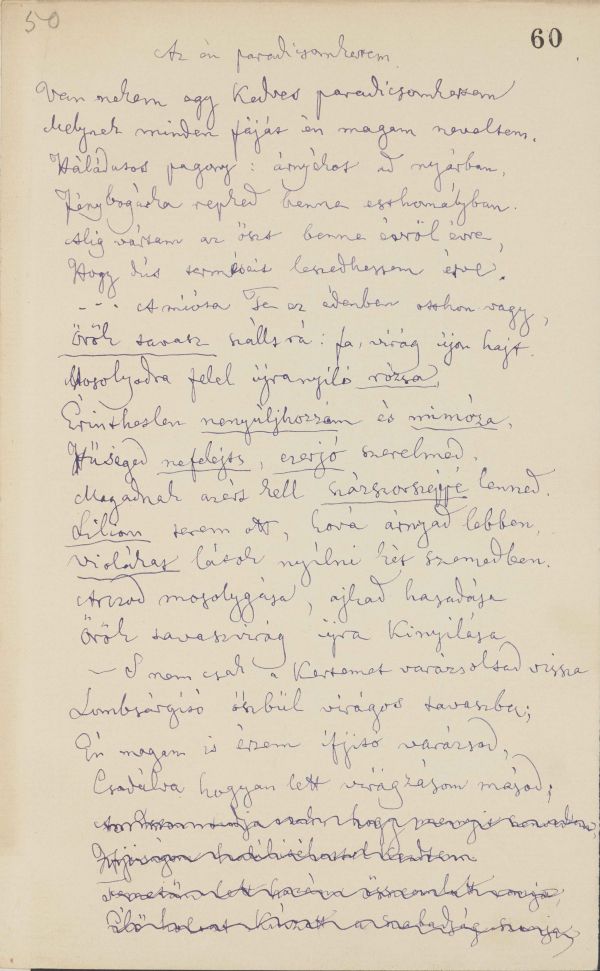 50
60
Az én paradicsomkertem.
Van nekem egy Kedves paradicsomkertem
Melynek minden fáját én magam neveltem.
Háládatos pagony: árnyékot ad nyárban,
Fénybogárka repked benne esthomályban.
Alig vártam az őszt benne évről évre,
Hogy dús terméseit leszedhessem érve.
- - - Amióta Te ez édenben otthon vagy,
Örök tavasz szállt rá: fa, virág újon hajt.
Mosolyodra felel újranyíló rózsa,
Érinthetlen nenyúljhozzám és mimóza,
Hűséged nefelejts, ezerjó szerelmed.
Magadnak azért kell százszorszéppé lenned.
Liliom terem ott, hová árnyad lebben,
Violákat látok nyílni két szemedben.
Arczod mosolygása, ajkad hasadása
Örök tavaszvirág újra Kinyílása
— S nem csak a Kertemet varázsoltad vissza
Lombsárgító őszbül virágos tavaszba;
Én magam is érzem ifjító varázsod,
Csodálva hogyan lett virágzásom másod;
hogy
lett
a szabadság